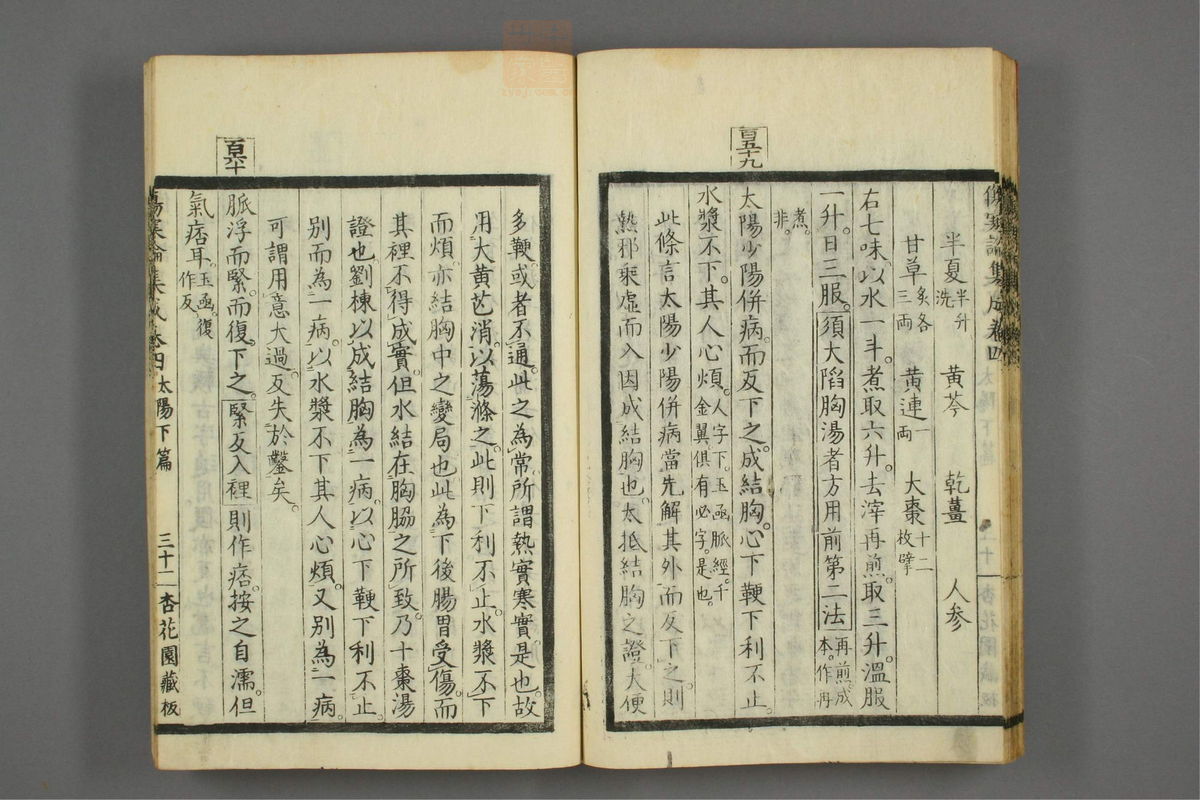 傷寒論集成卷四
半夏半升洗 黃芩 乾薑 人參
甘草炙各三両 黃連一両 大棗十二枚擘
右七味。以水一斗。煮取六升。去滓再煎。取三升。溫服
一升。日三服。須大陷胸湯者方用前第二法再煎成本。作再
煮。非。
百五十九
太陽少陽併病。而反下之。成結胸。心下鞕下利不止。
水漿不下。其人心煩。人字下。玉函脈經。千金翼俱有必字。是也。
此條言太陽少陽併病當先解其外而反下之。則
熱邪乘虛而入因成結胸也。太抵結胸之證。大便
多鞕。或者不通。此之為常。所謂熱實寒實。是也。故
用大黃芒消。以蕩滌之。此則下利不止。水漿不下
而煩。亦結胸中之變局也此為下後腸胃受傷。而
其裡不得成實。但水結在胸脇之所致。乃十棗湯
證也。劉棟以成結胸為一病。以心下鞕下利不止。
別而為一病。以水漿不下其人心煩。又別為一病。
可謂用意大過。反失於鑿矣。
百六十
脈浮而緊。而復下之。緊反入裡則作痞。按之自濡。但
氣痞耳。玉函。復作反
傷寒論集成卷四 太陽下篇 三十二 杏花園藏板